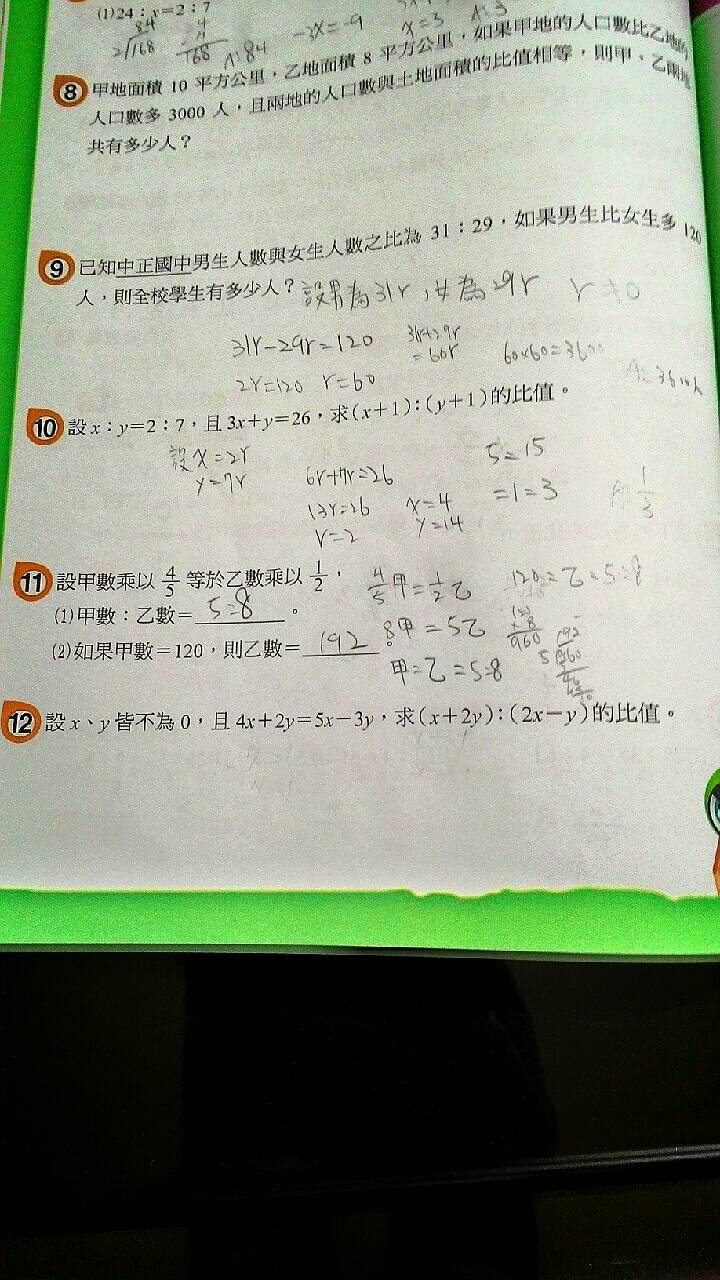 (1)24：x=2：7
84
2/168
168 A:84
-3x=-9
x=3 A:3
8 甲地面積 10 平方公里，乙地面積 8 平方公里，如果甲地的人口數比乙地的
人口數多 3000 人，且兩地的人口數與土地面積的比值相等，則甲、乙兩地
共有多少人？
9 已知中正國中男生人數與女生人數之比為 31：29，如果男生比女生多 120
人，則全校學生有多少人？設男為31r，女為29r r≠0
31r-29r=120
2r=120 r=60
31r+29r
=60r
60×60=3600
A:3600人
10 設 x：y=2：7，且 3x+y=26，求(x+1)：(y+1)的比值。
設x=2r
y=7r
6r+7r=26
13r=26
r=2
x=4
y=14
5:15
=1:3
A:1/3
11 設甲數乘以 4/5 等於乙數乘以 1/2，
(1)甲數：乙數=5:8。
(2)如果甲數=120，則乙數=192。
4/5甲=1/2乙
8甲=5乙
甲:乙=5:8
120:乙=5:8
120
×8
960
192
5/960
12 設 x、y 皆不為 0，且 4x+2y=5x-3y，求(x+2y)：(2x-y)的比值。